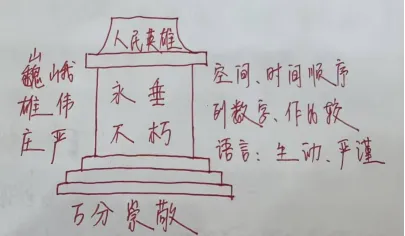 人民英雄
永垂
不朽
巍峨
雄伟
庄严
空间、时间顺序
列数字、作比较
语言：生动、严谨
万分崇敬